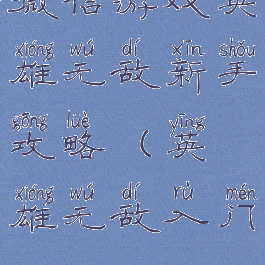 微信游戏英
xióng wú dí xīn shǒu
雄无敌新手
gōng lüè yīng
攻略（英
xióng wú dí rù mén
雄无敌入门